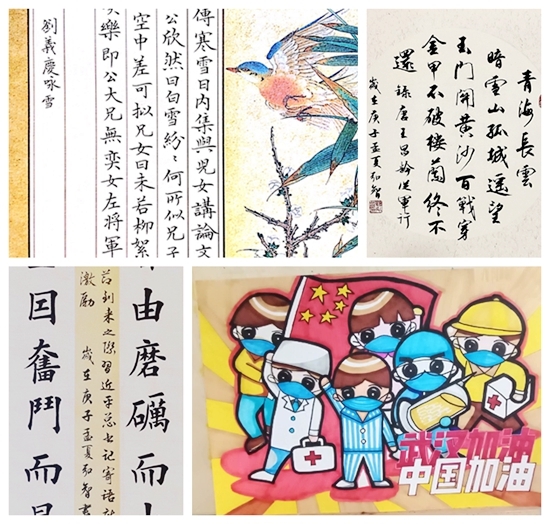 傳寒雪日內集與兒女講論文
公欣然曰白雪紛〻何所似兄子
空中差可拟兄女曰未若柳絮
樂即公大兄無奕女左將軍
劉義慶咏雪
青海長雲
暗雪山孤城遥望
玉門関黄沙百戰穿
金甲不破樓蘭終不
還 錄唐王昌齡從軍行
歲在庚子孟夏和智
由磨礪而
到来之際習近平总书记寄語
激励 歲在庚子孟夏和智書
囯奮鬥而
武汉加油
中国加油